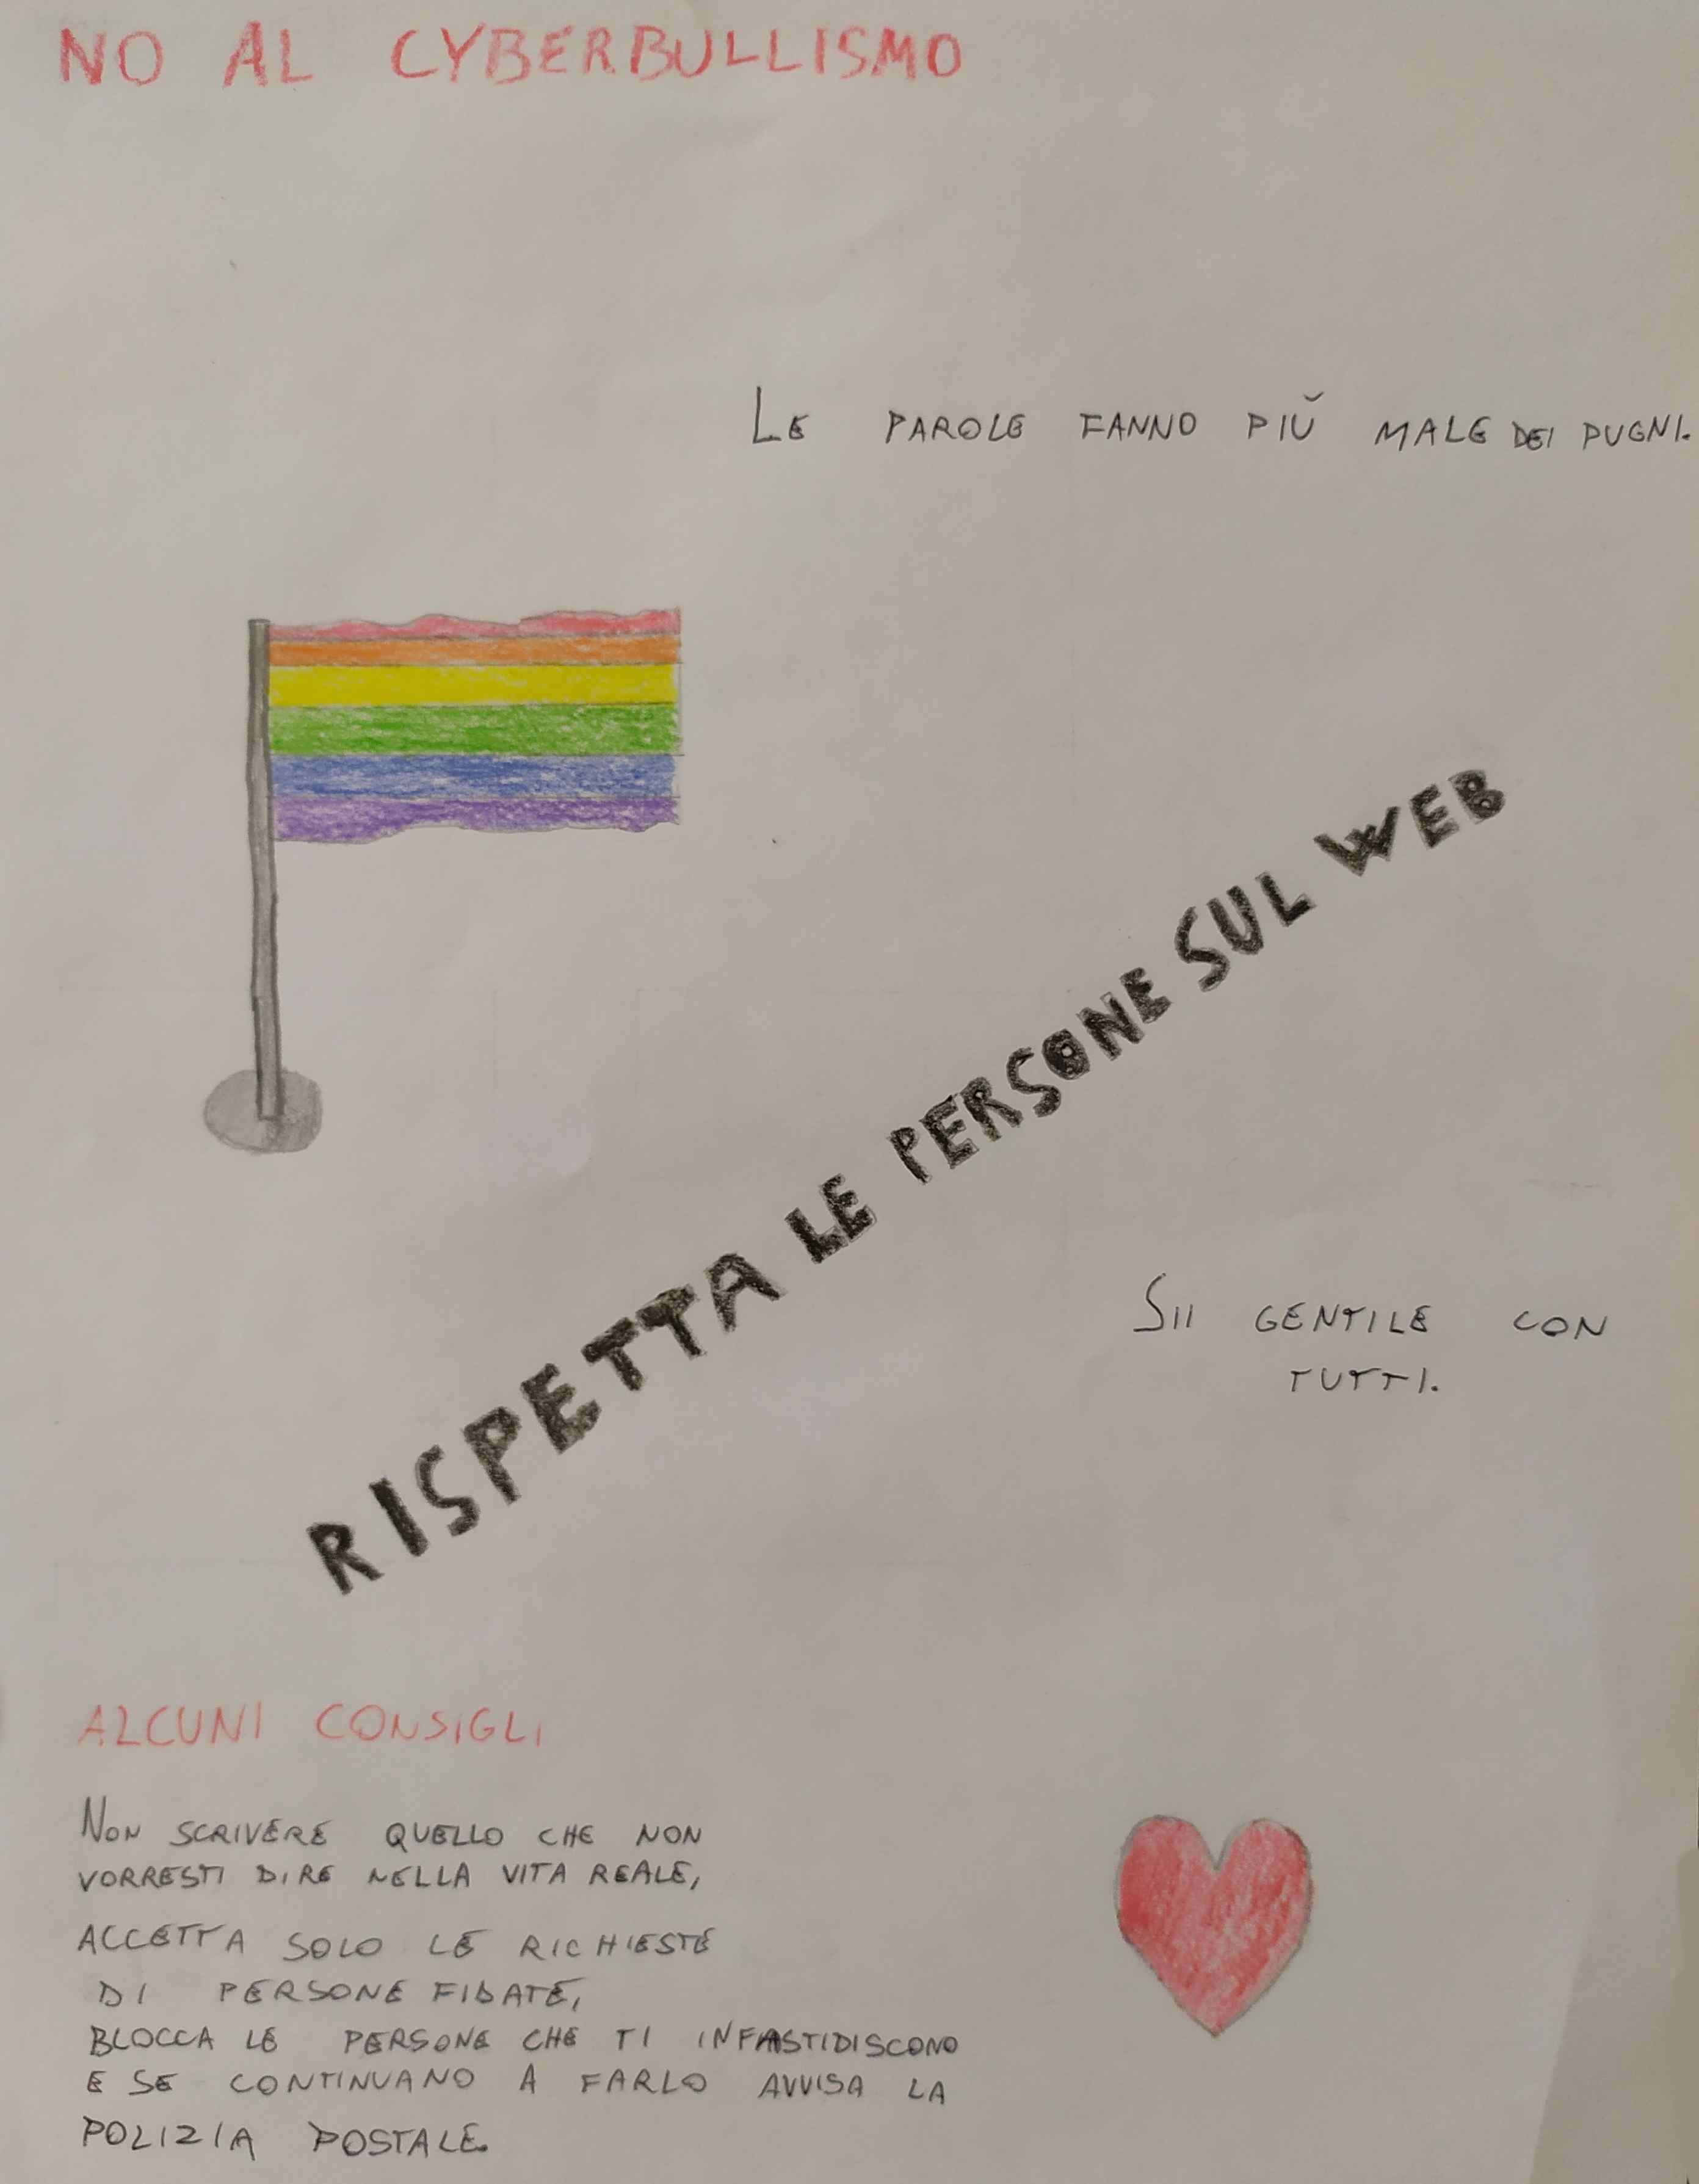 NO AL CYBERBULLISMO
LE PAROLE FANNO PIÙ MALE DEI PUGNI.
RISPETTA LE PERSONE SUL WEB
SII GENTILE CON
TUTTI.
ALCUNI CONSIGLI
NON SCRIVERE QUELLO CHE NON
VORRESTI DIRE NELLA VITA REALE,
ACCETTA SOLO LE RICHIESTE
DI PERSONE FIDATE,
BLOCCA LE PERSONE CHE TI INFASTIDISCONO
E SE CONTINUANO A FARLO AVVISA LA
POLIZIA POSTALE.